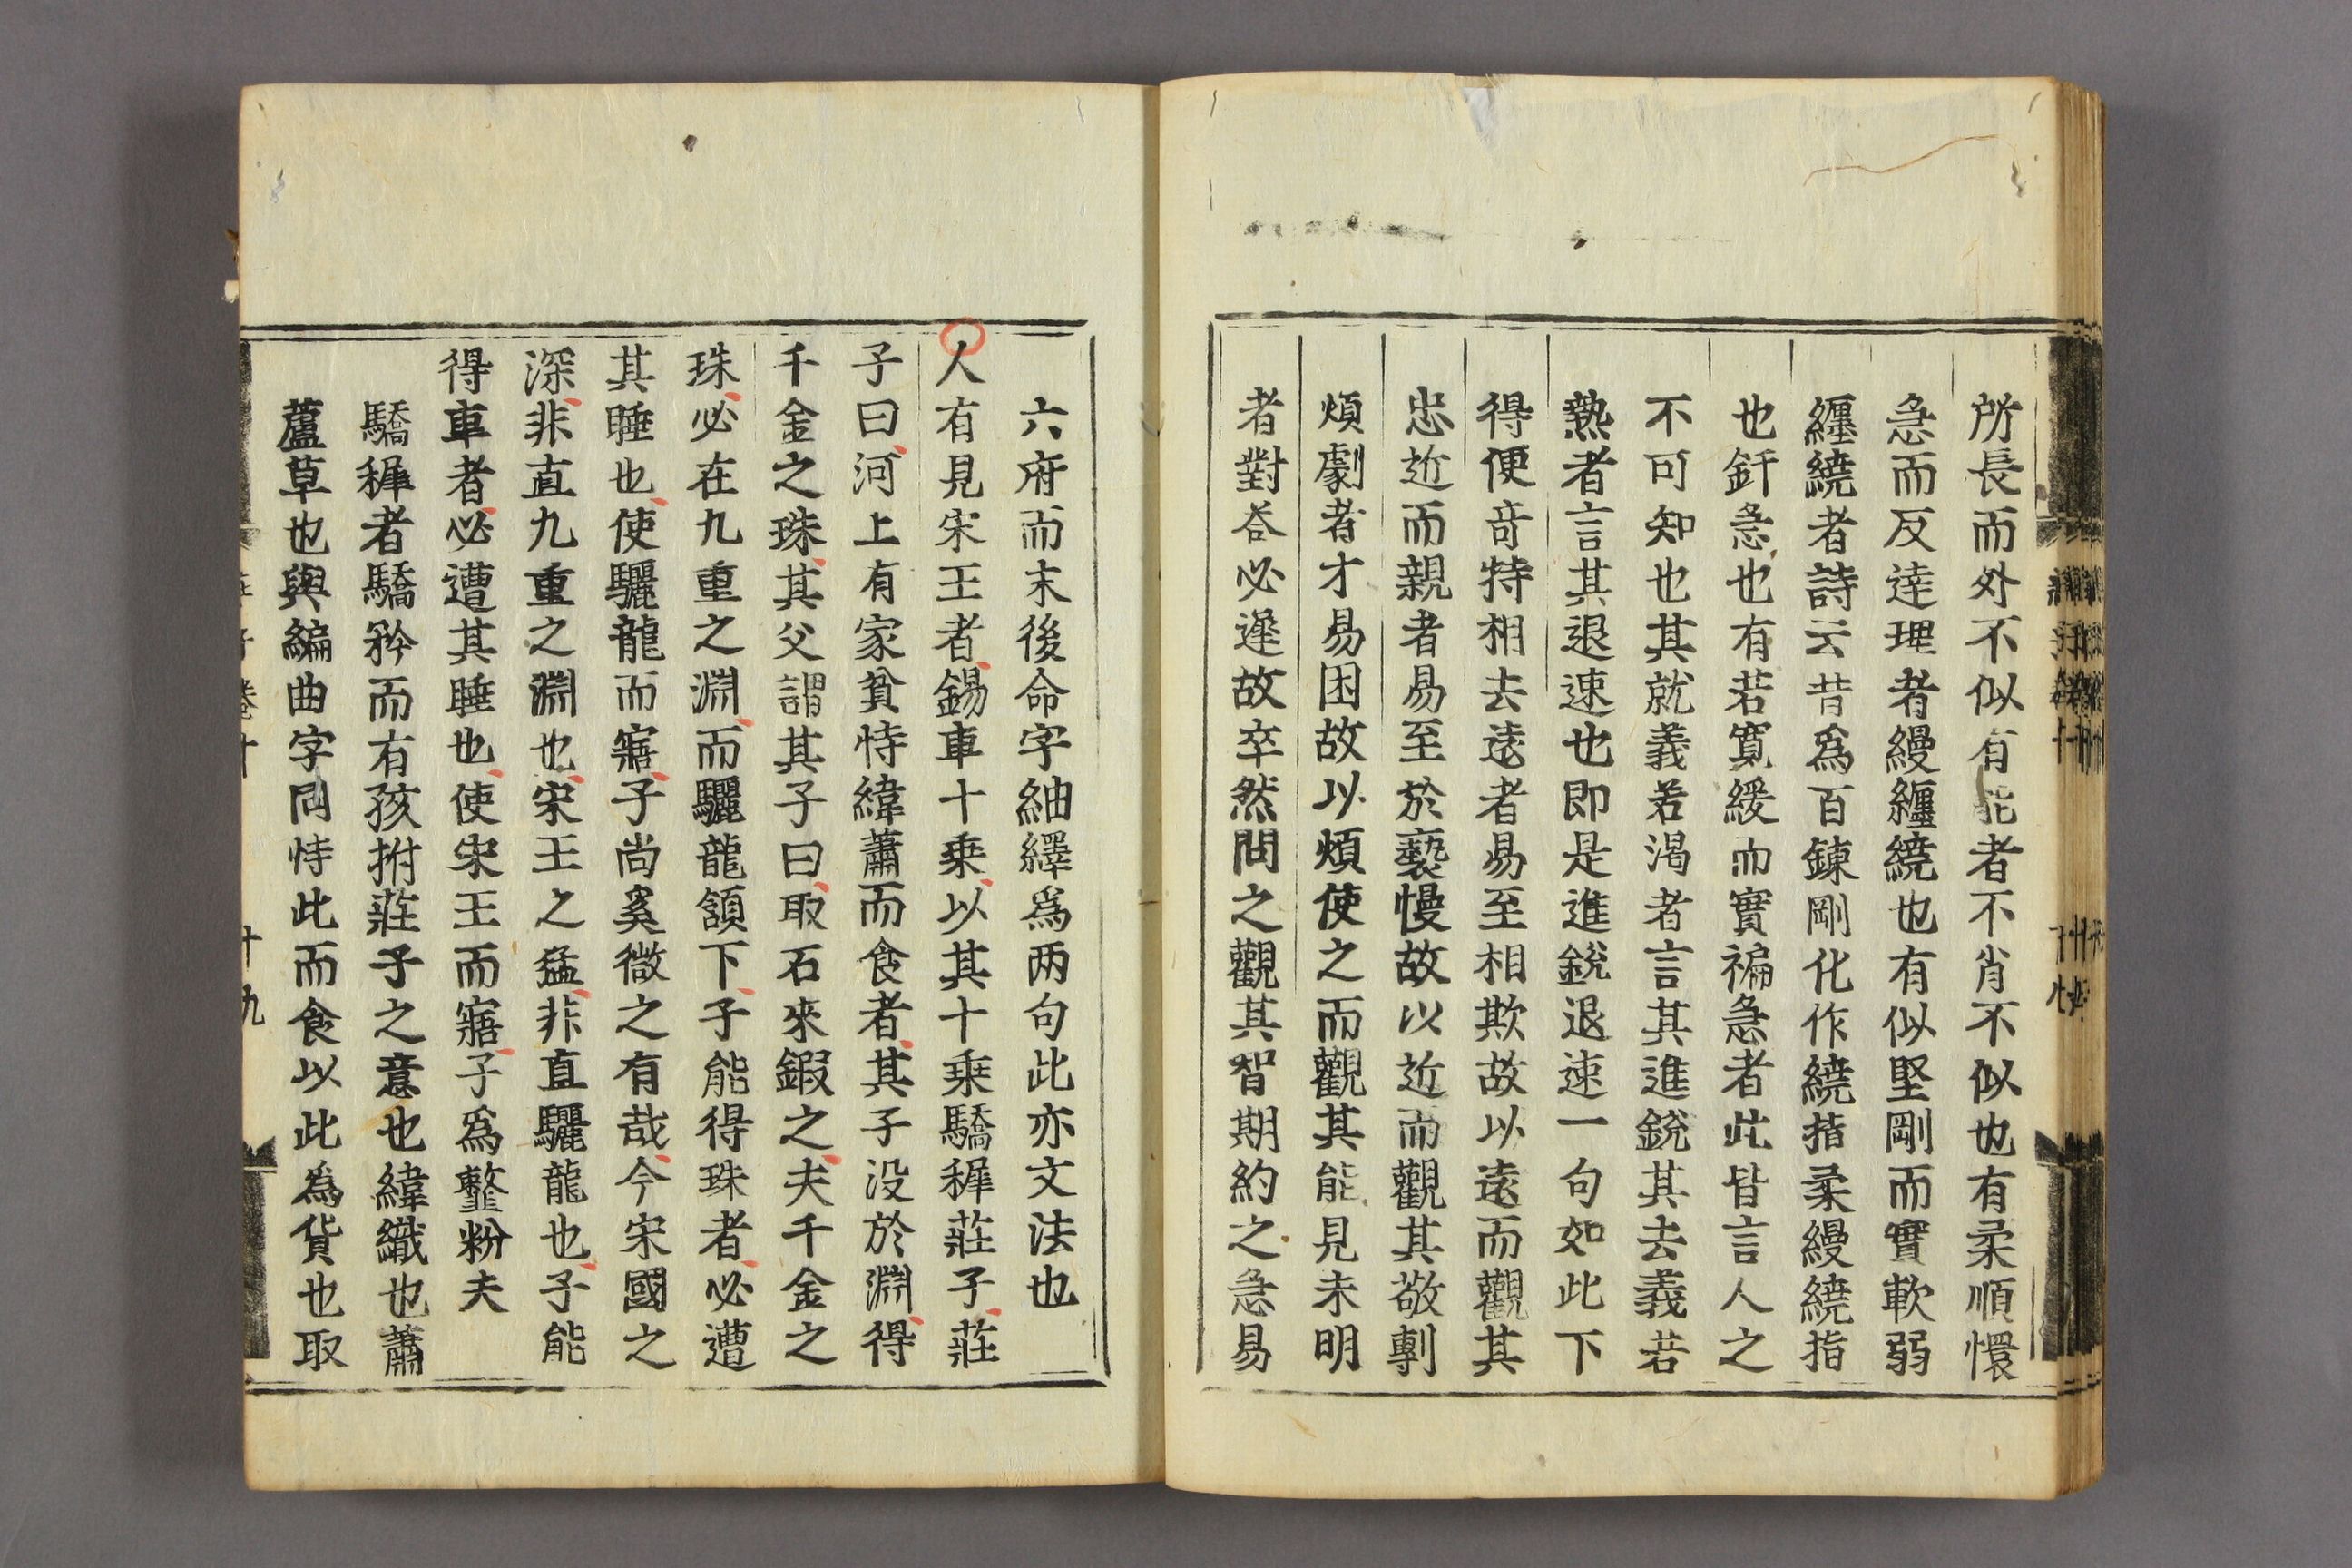 所長而外不似有能者不肖不似也有柔順懁
急而反達理者縵纏繞也有似堅剛而實軟弱
纏繞者詩云昔爲百鍊剛化作繞指柔縵繞指
也釬急也有若寬緩而實褊急者此皆言人之
不可知也其就義若渴者言其進銳其去義若
熱者言其退速也即是進銳退速一句如此下
得便奇特相去遠者易至相欺故以遠而觀其
忠近而親者易至於褻慢故以近而觀其敬剸
煩劇者才易困故以煩使之而觀其能見未明
者對答必遲故卒然問之觀其智期約之急易
六府而末後命字紬繹爲两句此亦文法也
人有見宋王者錫車十乗以其十乗驕穉莊子莊
子曰河上有家貧恃緯蕭而食者其子没於淵得
千金之珠其父謂其子曰取石來鍜之夫千金之
珠必在九重之淵而驪龍頷下子能得珠者必遭
其睡也使驪龍而寤子尚奚微之有哉今宋國之
深非直九重之淵也宋王之猛非直驪龍也子能
得車者必遭其睡也使宋王而寤子爲韲粉夫
驕穉者驕矜而有孩拊莊子之意也緯織也蕭
蘆草也與編曲字同恃此而食以此為貨也取
莊子卷十
十九